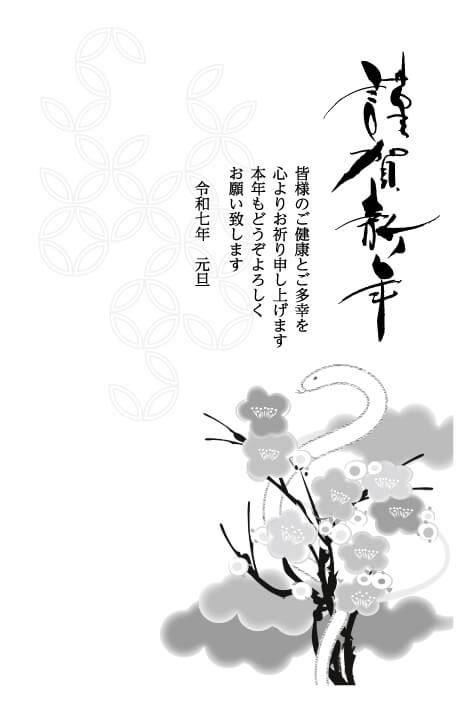 謹賀新年
皆様のご健康とご多幸を
心よりお祈り申し上げます
本年もどうぞよろしく
お願い致します
令和七年　元旦